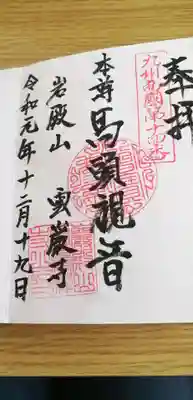 奉拝
九州西国第十四番
本尊馬頭観音
岩殿山 雲巌寺
令和元年十二月十九日